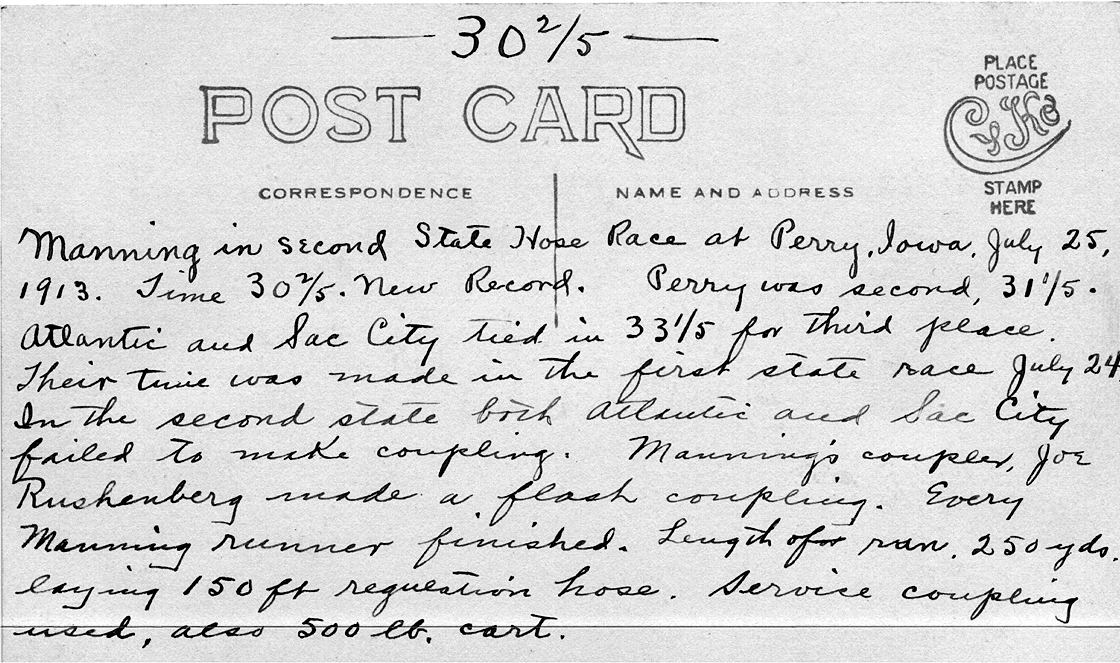 30 2/5
POST CARD
PLACE
POSTAGE
CYKO
STAMP
HERE
CORRESPONDENCE
NAME AND ADDRESS
Manning in second State Hose Race at Perry, Iowa, July 25,
1913. Time 30 2/5. New Record. Perry was second, 31 1/5.
Atlantic and Sac City tied in 33 1/5 for third place.
Their time was made in the first state race July 24
In the second state both Atlantic and Sac City
failed to make coupling. Manning's coupler, Joe
Rushenberg made a flash coupling. Every
Manning runner finished. Length of run, 250 yds.
laying 150 ft reguation hose. Service coupling
used, also 500 lb. cart.